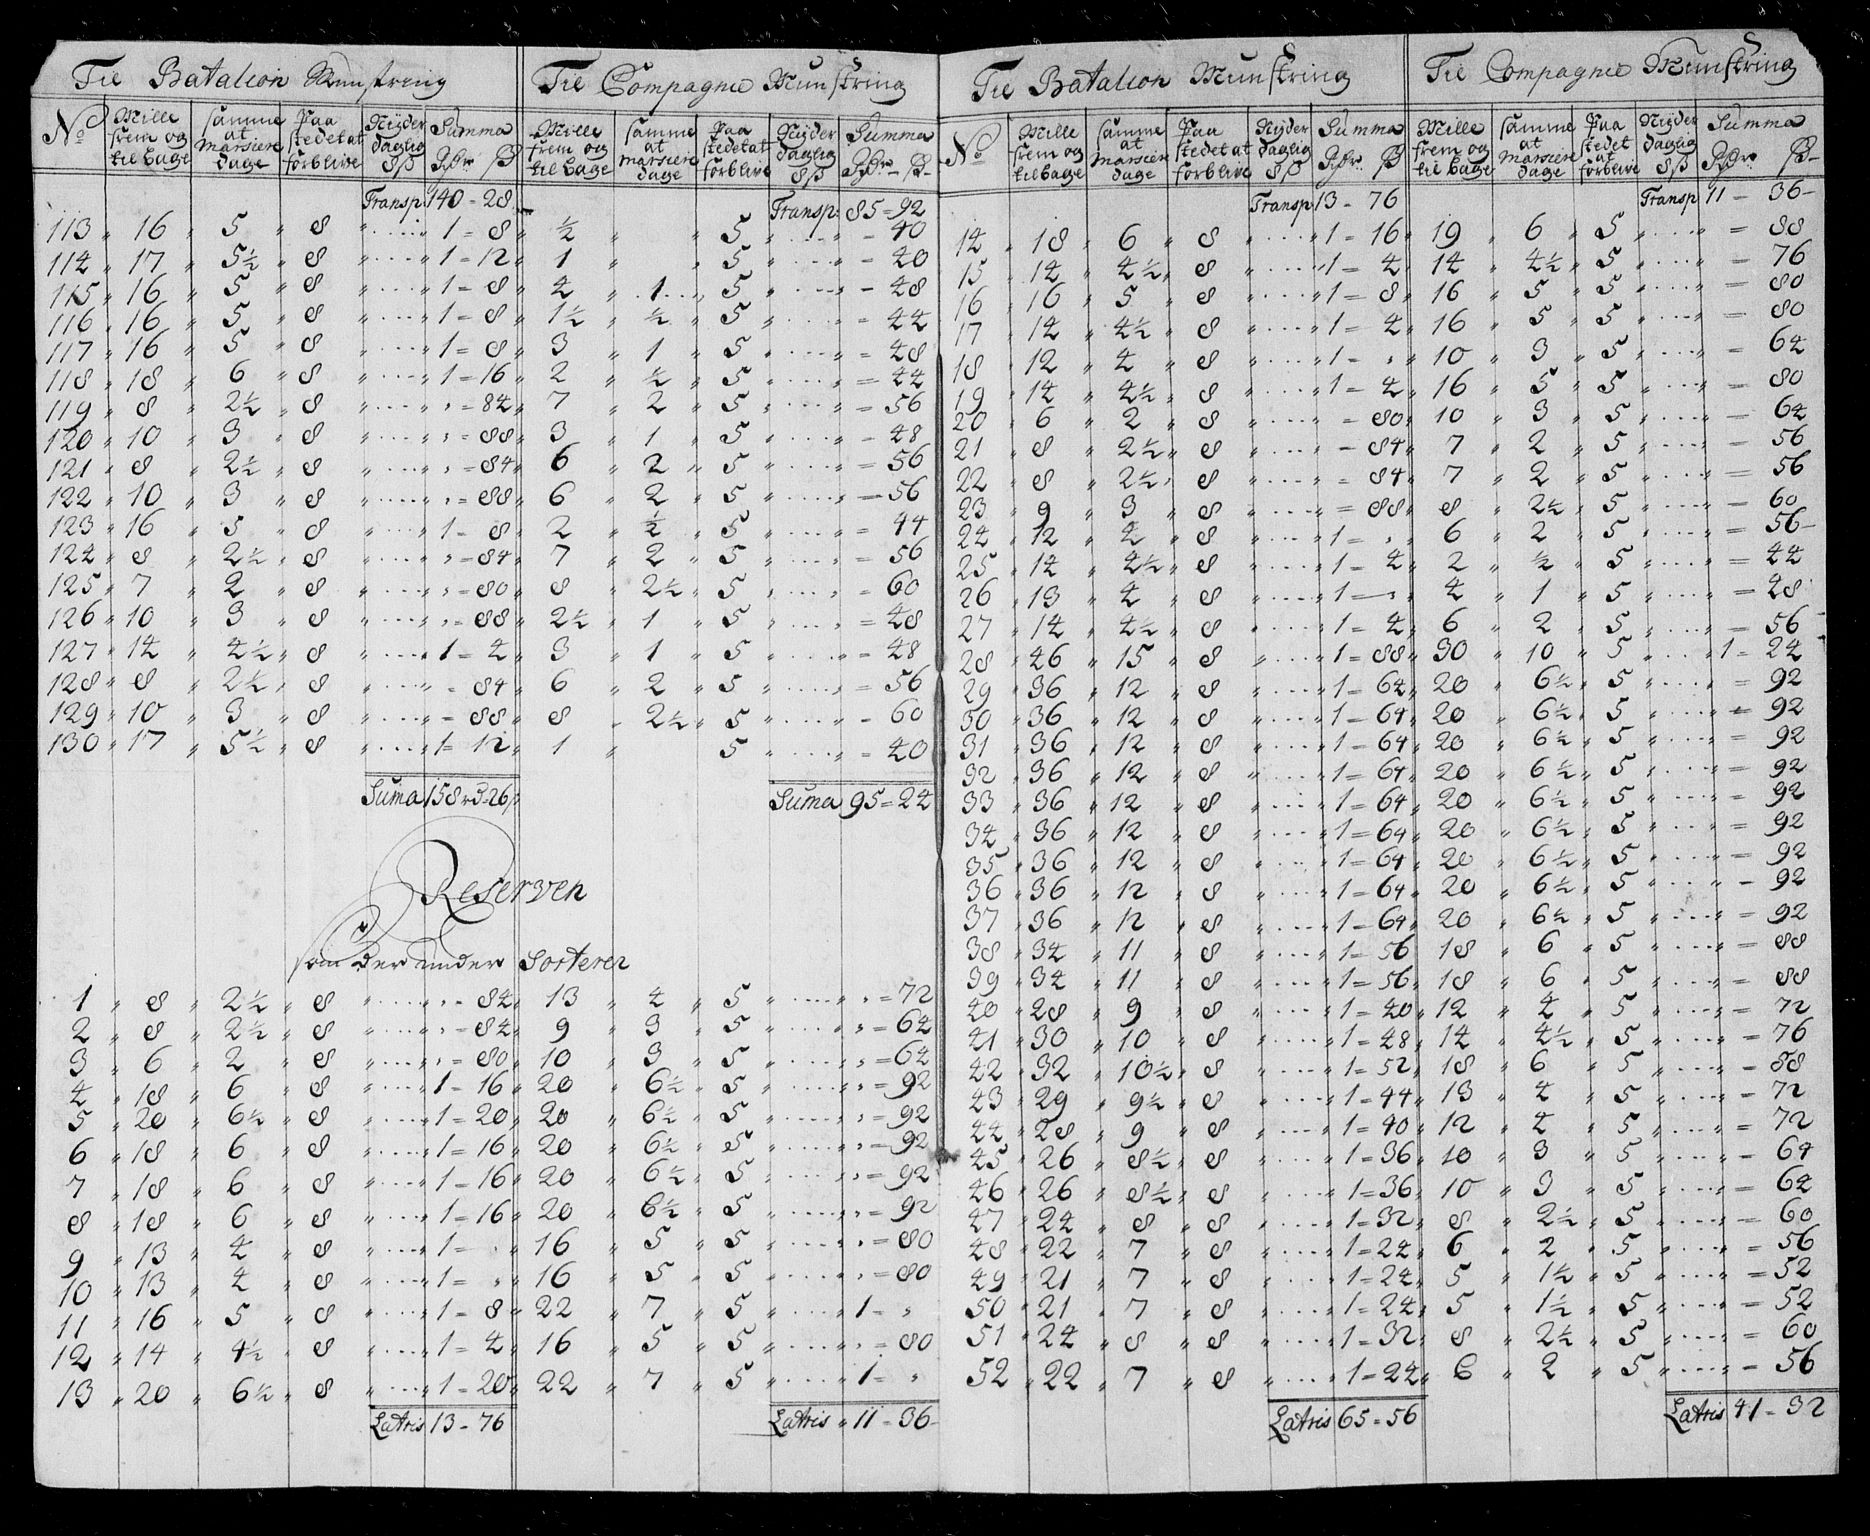 Til Batalion Munstring Til Compagnie Munstring
No Mille frem og til bage samme at marsiere dage Paa stedet at forblive Nyder daglig 8 ß Summa Rdr ß Mille frem og til bage samme at marsiere dage Paa stedet at forblive Nyder daglig 8 ß Summa Rdr - ß -
Transp: 140 = 28 Transp: 85 = 92
113 " 16 " 5 " 8 " .... " 1 = 8 " ½ " " 5 " .... " = 40
114 " 17 " 5½ " 8 " .... " 1 = 12 " 1 " " 5 " .... " = 40
115 " 16 " 5 " 8 " .... " 1 = 8 " 4 " 1 " 5 " .... " = 48
116 " 16 " 5 " 8 " .... " 1 = 8 " 1½ " ½ " 5 " .... " = 44
117 " 16 " 5 " 8 " .... " 1 = 8 " 3 " 1 " 5 " .... " = 48
118 " 18 " 6 " 8 " .... " 1 = 16 " 2 " ½ " 5 " .... " = 44
119 " 8 " 2½ " 8 " .... " " = 84 " 7 " 2 " 5 " .... " = 56
120 " 10 " 3 " 8 " .... " " = 88 " 3 " 1 " 5 " .... " = 48
121 " 8 " 2½ " 8 " .... " " = 84 " 6 " 2 " 5 " .... " = 56
122 " 10 " 3 " 8 " .... " " = 88 " 6 " 2 " 5 " .... " = 56
123 " 16 " 5 " 8 " .... " 1 = 8 " 2 " ½ " 5 " .... " = 44
124 " 8 " 2½ " 8 " .... " " = 84 " 7 " 2 " 5 " .... " = 56
125 " 7 " 2 " 8 " .... " " = 80 " 8 " 2½ " 5 " .... " = 60
126 " 10 " 3 " 8 " .... " " = 88 " 2½ " 1 " 5 " .... " = 48
127 " 14 " 4½ " 8 " .... " 1 = 4 " 3 " 1 " 5 " .... " = 48
128 " 8 " 2½ " 8 " .... " " = 84 " 6 " 2 " 5 " .... " = 56
129 " 10 " 3 " 8 " .... " " = 88 " 8 " 2½ " 5 " .... " = 60
130 " 17 " 5½ " 8 " .... " 1 = 12 " 1 " 5 " .... " = 40
Suma 158 rd 26 ß Suma 95 = 24
Reserven
som der under Sorterer
1 " 8 " 2½ " 8 " .... " " = 84 " 13 " 4 " 5 " .... " " = 72
2 " 8 " 2½ " 8 " .... " " = 84 " 9 " 3 " 5 " .... " " = 64
3 " 6 " 2 " 8 " .... " " = 80 " 10 " 3 " 5 " .... " " = 64
4 " 18 " 6 " 8 " .... " 1 = 16 " 20 " 6½ " 5 " .... " " = 92
5 " 20 " 6½ " 8 " .... " 1 = 20 " 20 " 6½ " 5 " .... " " = 92
6 " 18 " 6 " 8 " .... " 1 = 16 " 20 " 6½ " 5 " .... " " = 92
7 " 18 " 6 " 8 " .... " 1 = 16 " 20 " 6½ " 5 " .... " " = 92
8 " 18 " 6 " 8 " .... " 1 = 16 " 20 " 6½ " 5 " .... " " = 92
9 " 13 " 4 " 8 " .... " 1 = " " 16 " 5 " 5 " .... " " = 80
10 " 13 " 4 " 8 " .... " 1 = " " 16 " 5 " 5 " .... " " = 80
11 " 16 " 5 " 8 " .... " 1 = 8 " 22 " 7 " 5 " .... " 1 = "
12 " 14 " 4½ " 8 " .... " 1 = 4 " 16 " 5 " 5 " .... " " = 80
13 " 20 " 6½ " 8 " .... " 1 = 20 " 22 " 7 " 5 " .... " 1 = "
Latris 13 = 76 Latris " 11 = 36
Til Batalion Munstring Til Compagnie Munstring
No Mille frem og til bage samme at marsiere dage Paa stedet at forblive Nyder daglig 8 ß Summa Rdr ß Mille frem og til bage samme at marsiere dage Paa stedet at forblive Nyder daglig 8 ß Summa Rdr ß -
Transp 13 = 76 Transp 11 = 36 -
14 " 18 " 6 " 8 " .... " 1 = 16 " 19 " 6 " 5 " .... " = 88
15 " 14 " 4½ " 8 " .... " 1 = 4 " 14 " 4½ " 5 " .... " = 76
16 " 16 " 5 " 8 " .... " 1 = 8 " 16 " 5 " 5 " .... " = 80
17 " 14 " 4½ " 8 " .... " 1 = 4 " 16 " 5 " 5 " .... " = 80
18 " 12 " 4 " 8 " .... " 1 = " " 10 " 3 " 5 " .... " = 64
19 " 14 " 4½ " 8 " .... " 1 = 4 " 16 " 5 " 5 " .... " = 80
20 " 6 " 2 " 8 " .... " = 80 " 10 " 3 " 5 " .... " = 64
21 " 8 " 2½ " 8 " .... " = 84 " 7 " 2 " 5 " .... " = 56
22 " 8 " 2½ " 8 " .... " = 84 " 7 " 2 " 5 " .... " = 56
23 " 9 " 3 " 8 " .... " = 88 " 8 " 2½ " 5 " .... " = 60
24 " 12 " 4 " 8 " .... " 1 = " " 6 " 2 " 5 " .... " = 56 -
25 " 14 " 4½ " 8 " .... " 1 = 4 " 2 " ½ " 5 " .... " = 44
26 " 13 " 4 " 8 " .... " 1 = " " 4 " 1 " 5 " .... " = 48
27 " 14 " 4½ " 8 " .... " 1 = 4 " 6 " 2 " 5 " .... " = 56
28 " 46 " 15 " 8 " .... " 1 = 88 " 30 " 10 " 5 " .... " 1 = 24
29 " 36 " 12 " 8 " .... " 1 = 64 " 20 " 6½ " 5 " .... " = 92
30 " 36 " 12 " 8 " .... " 1 = 64 " 20 " 6½ " 5 " .... " = 92
31 " 36 " 12 " 8 " .... " 1 = 64 " 20 " 6½ " 5 " .... " = 92
32 " 36 " 12 " 8 " .... " 1 = 64 " 20 " 6½ " 5 " .... " = 92
33 " 36 " 12 " 8 " .... " 1 = 64 " 20 " 6½ " 5 " .... " = 92
34 " 36 " 12 " 8 " .... " 1 = 64 " 20 " 6½ " 5 " .... " = 92
35 " 36 " 12 " 8 " .... " 1 = 64 " 20 " 6½ " 5 " .... " = 92
36 " 36 " 12 " 8 " .... " 1 = 64 " 20 " 6½ " 5 " .... " = 92
37 " 36 " 12 " 8 " .... " 1 = 64 " 20 " 6½ " 5 " .... " = 92
38 " 34 " 11 " 8 " .... " 1 = 56 " 18 " 6 " 5 " .... " = 88
39 " 34 " 11 " 8 " .... " 1 = 56 " 18 " 6 " 5 " .... " = 88
40 " 28 " 9 " 8 " .... " 1 = 40 " 12 " 4 " 5 " .... " = 72
41 " 30 " 10 " 8 " .... " 1 = 48 " 14 " 4½ " 5 " .... " = 76
42 " 32 " 10½ " 8 " .... " 1 = 52 " 18 " 6 " 5 " .... " = 88
43 " 29 " 9½ " 8 " .... " 1 = 44 " 13 " 4 " 5 " .... " = 72
44 " 28 " 9 " 8 " .... " 1 = 40 " 12 " 4 " 5 " .... " = 72
45 " 26 " 8½ " 8 " .... " 1 = 36 " 10 " 3 " 5 " .... " = 64
46 " 26 " 8½ " 8 " .... " 1 = 36 " 10 " 3 " 5 " .... " = 64
47 " 24 " 8 " 8 " .... " 1 = 32 " 8 " 2½ " 5 " .... " = 60
48 " 22 " 7 " 8 " .... " 1 = 24 " 6 " 2 " 5 " .... " = 56
49 " 21 " 7 " 8 " .... " 1 = 24 " 5 " 1½ " 5 " .... " = 52
50 " 21 " 7 " 8 " .... " 1 = 24 " 5 " 1½ " 5 " .... " = 52
51 " 24 " 8 " 8 " .... " 1 = 32 " 8 " 2½ " 5 " .... " = 60
52 " 22 " 7 " 8 " .... " 1 = 24 " 6 " 2 " 5 " .... " = 56
Latris 65 = 56 Latris 41 = 32